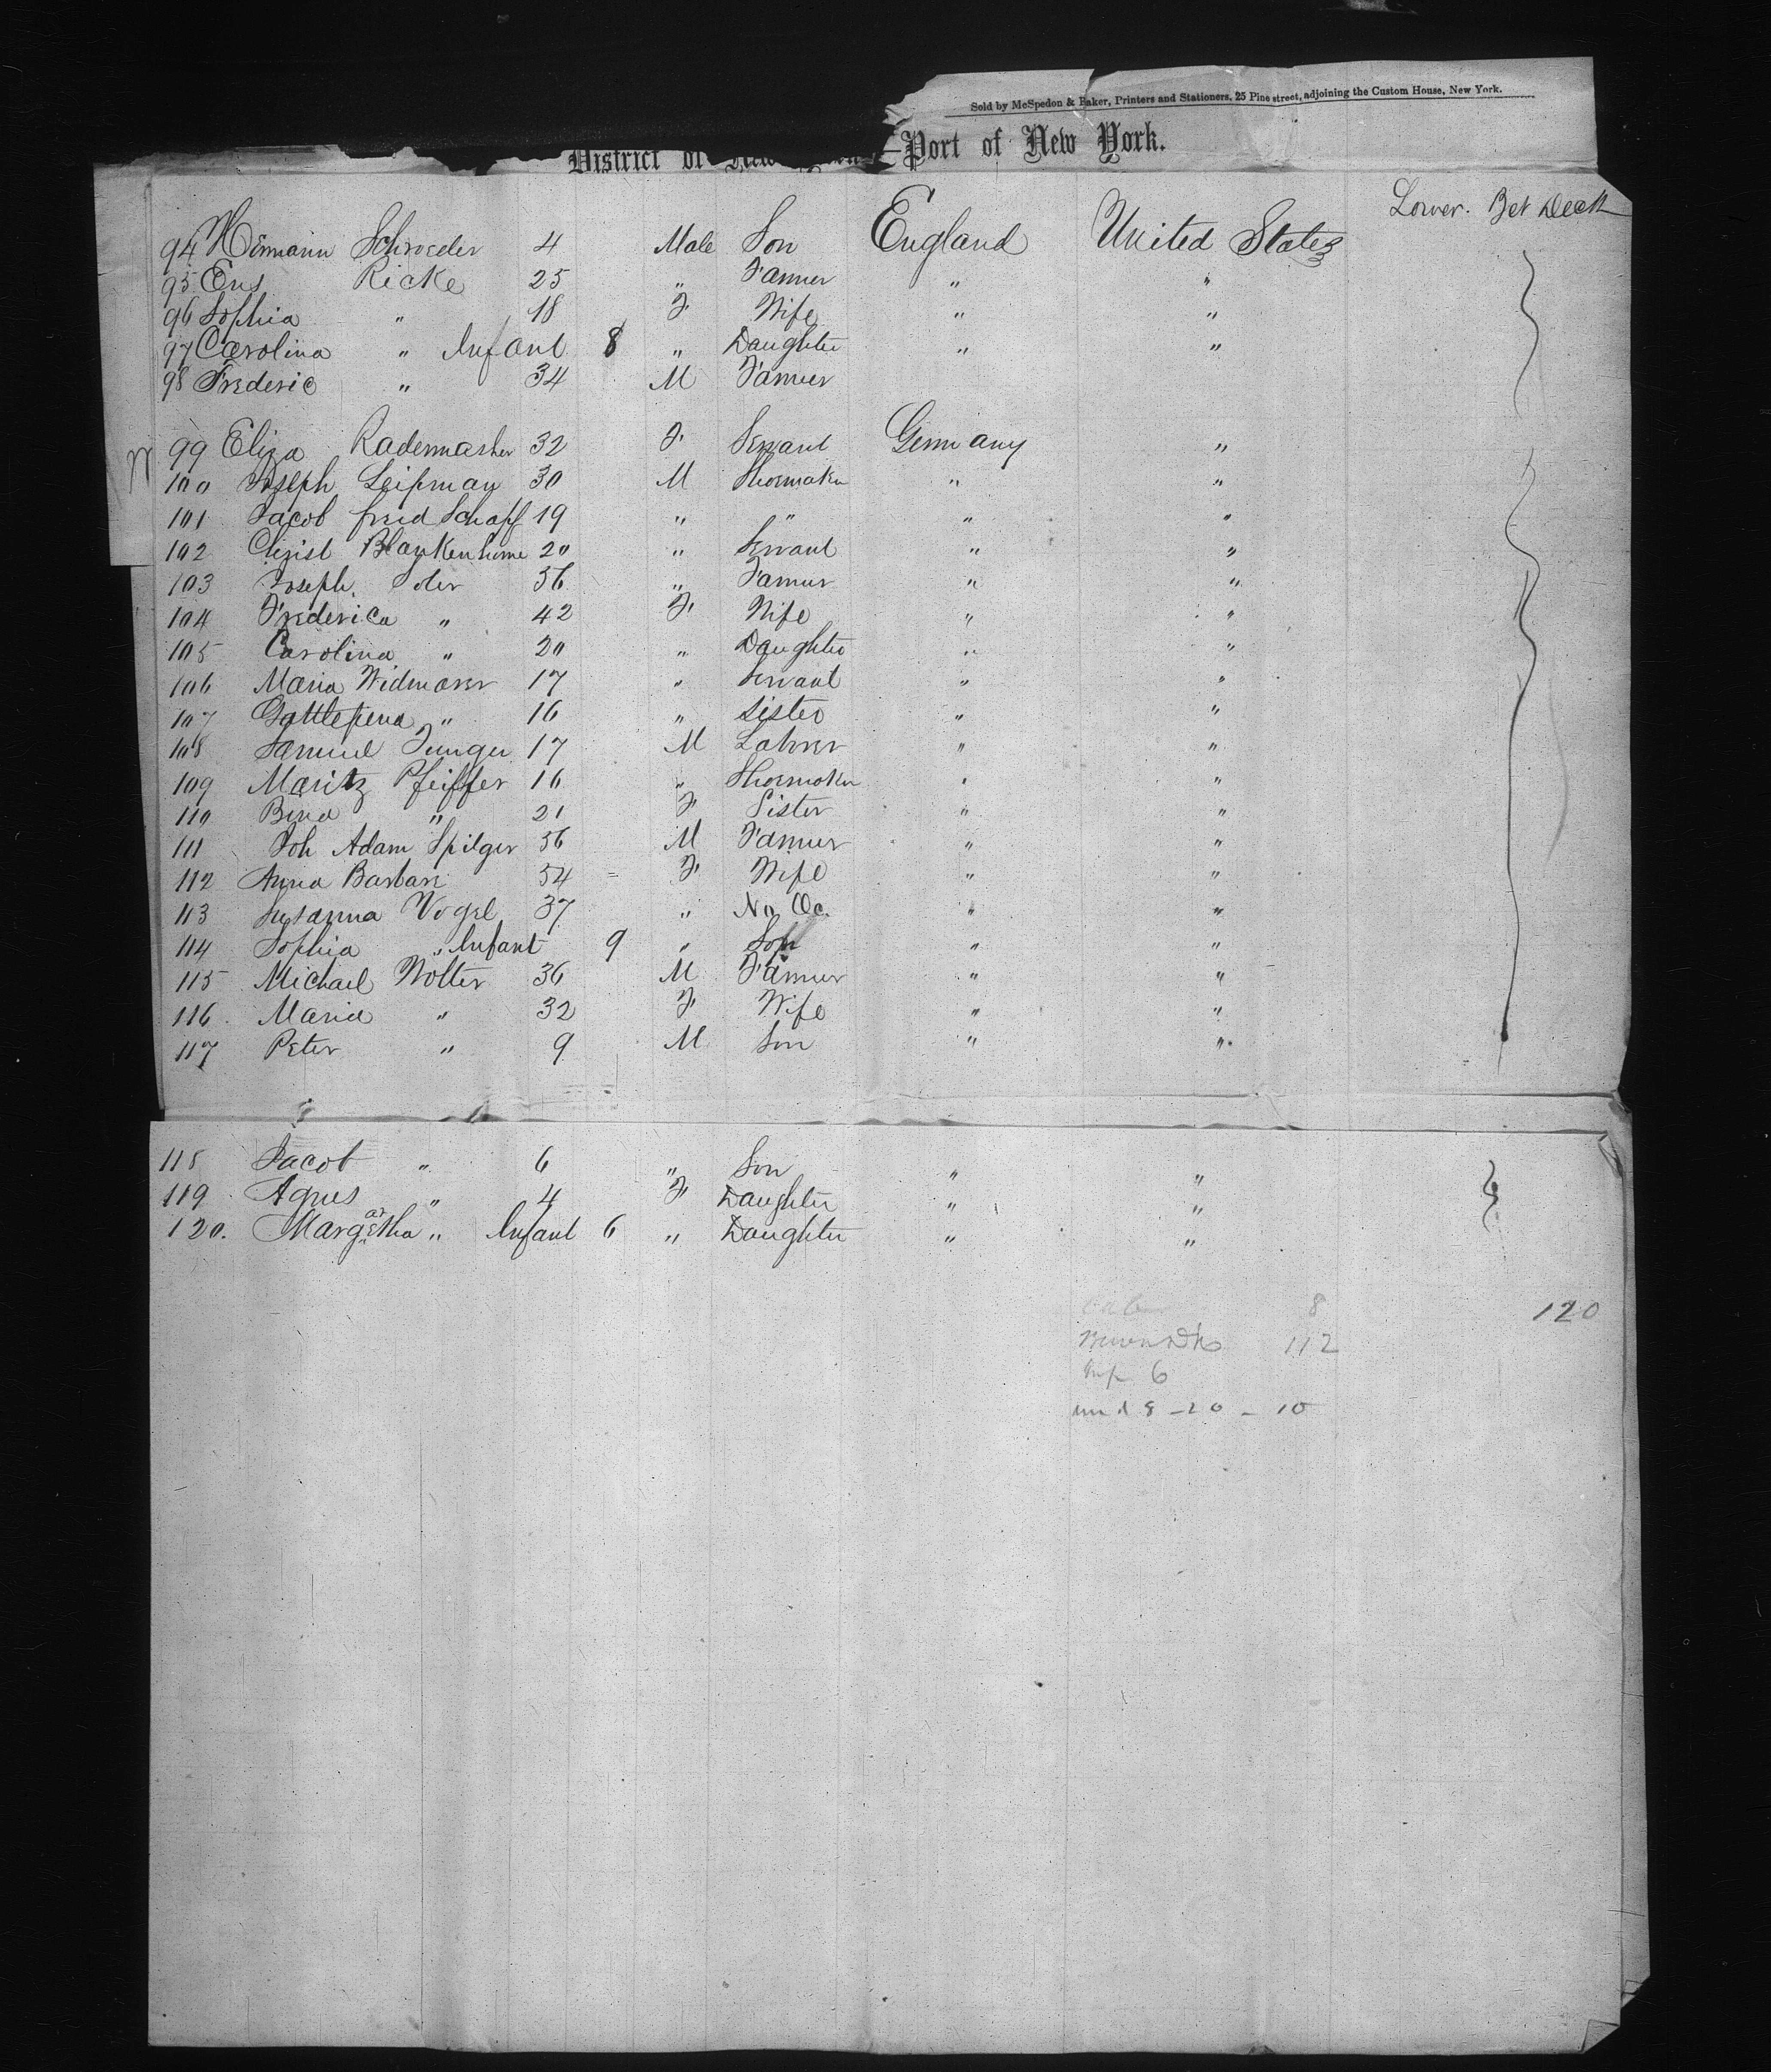 Sold by McSpedon & Baker, Printers and Stationers, 25 Pine street, adjoining the Custom House, New York.
District of New Port of New York.
Lower. Bet Deck
94 Hermann Schroeder 4 Male Son England United States
95 Ens Ricke 25 " Farmer " "
96 Sophia " 18 F Wife " "
97 Carolina " Infant 8 " Daughter " "
98 Frederic " 34 M Farmer
99 Eliza Rademasher 32 F Servant Germany "
100 Joseph Leipman 30 M Shoemaker " "
101 Jacob fried Schopf 19 " " " "
102 Christ Blankenhime 20 " Servant " "
103 Joseph Soler 56 " Farmer " "
104 Frederica " 42 F Wife " "
105 Carolina " 20 " Daughter " "
106 Maria Widmaver 17 " Servant " "
107 Gottlepena " 16 " Sister " "
108 Samuel Junger 17 M Labrer " "
109 Maritz Pfeiffer 16 " Shoemaker " "
110 Bena " 21 F Sister " "
111 Joh Adam Spilger 56 M Farmer " "
112 Anna Barbara 54 F Wife " "
113 Susanna Vogel 37 " No Oc. " "
114 Sophia " Infant 9 " Son " "
115 Michael Wolter 36 M Farmer " "
116. Maria " 32 F Wife " "
117 Peter " 9 M Son " "
118 Jacob " 6 " Son " "
119 Agnes " 4 F Daughter " "
120. Margaretha " Infant 6 " Daughter " "
8 120
112
Inf 6
und 8 - 20 - 10